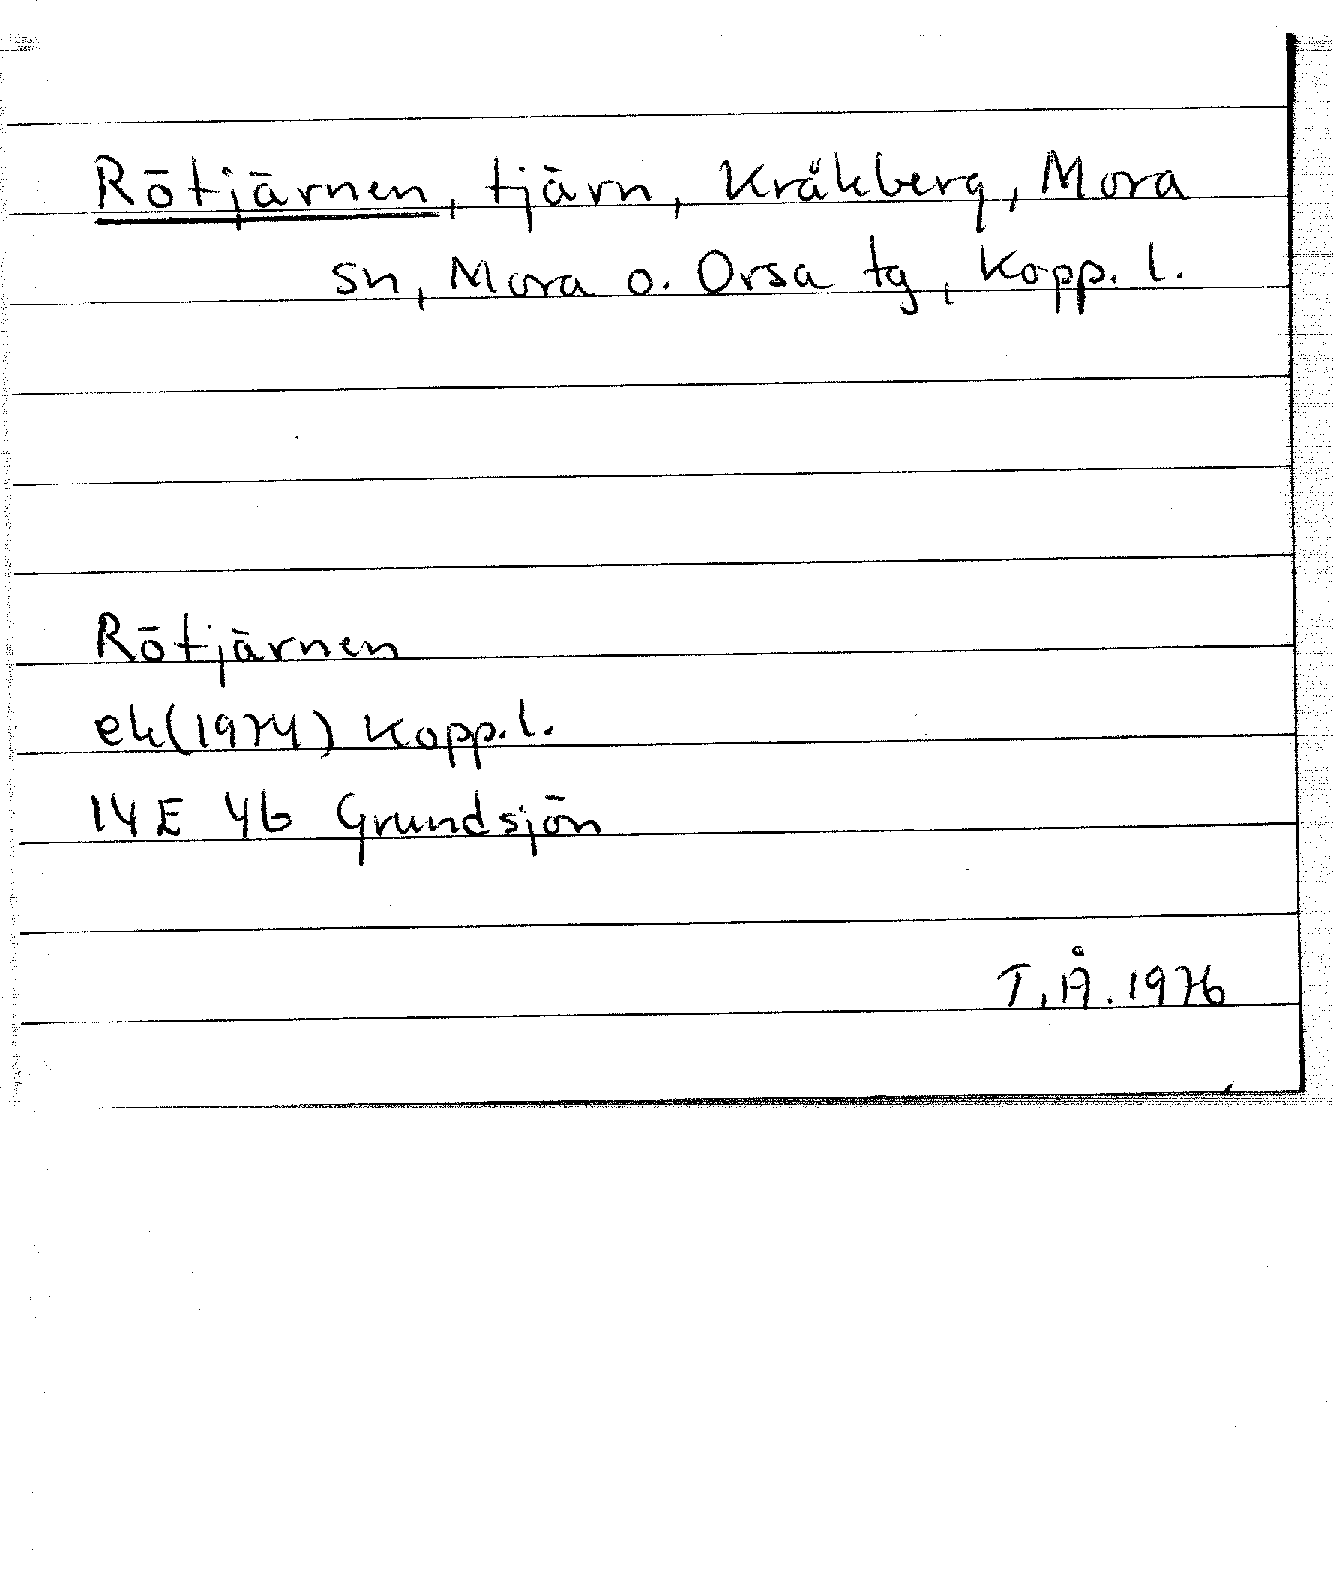 Rötjärnen, tjärn, Kråkberg, Mora
sn, Mora o. Orsa tg, Kopp. l.
Rötjärnen
ek(1974) Kopp.l.
14E 4b Grundsjön
T.Å.1976